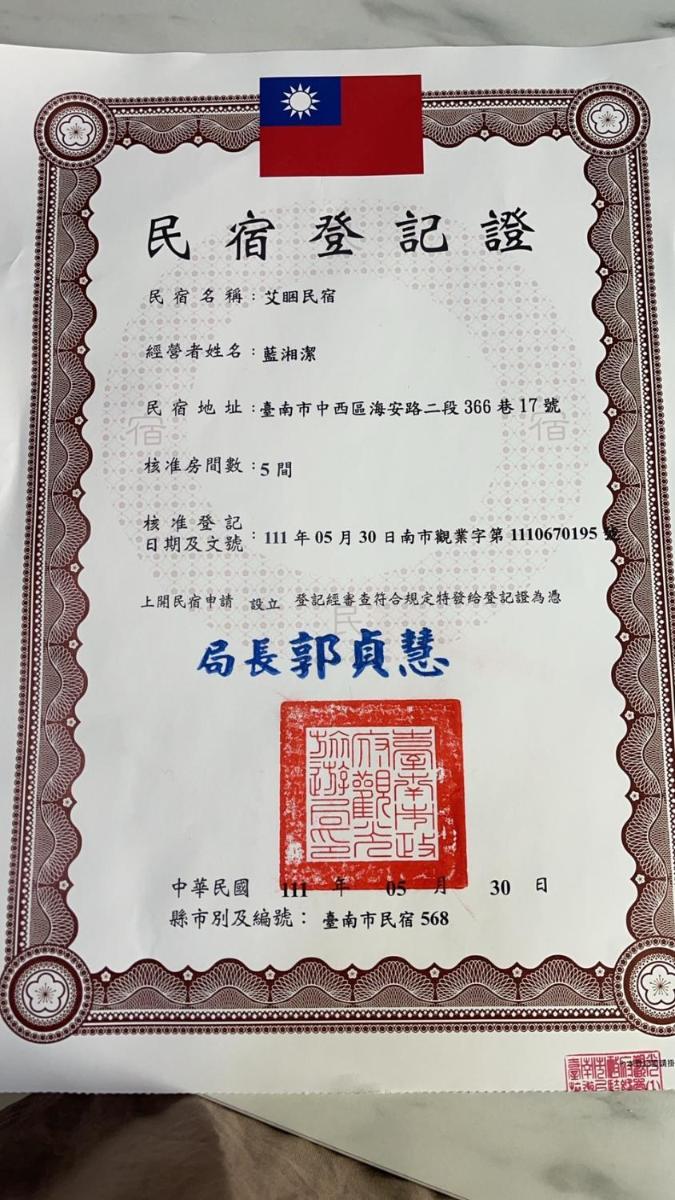 民宿登記證
民宿名稱：艾睏民宿
經營者姓名：藍湘潔
民宿地址：臺南市中西區海安路二段366巷17號
核准房間數：5間
核准登記日期及文號：111年05月30日南市觀業字第1110670195號
上開民宿申請 設立 登記經審查符合規定特發給登記證為憑
局長郭貞慧
臺南市政府觀光旅遊局印
中華民國 111 年 05 月 30 日
縣市別及編號：臺南市民宿568
宿
宿
民